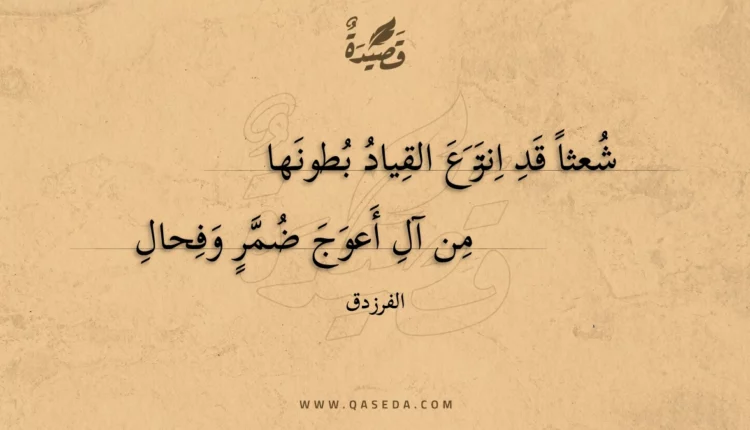 قَصِيْدَةٌ
شُعثاً قَدِ اِنتَزَعَ القِيادُ بُطونَها
مِن آلِ أَعوَجَ ضُمَّرٍ وَفِحالِ
الفرزدق
WWW.QASEDA.COM